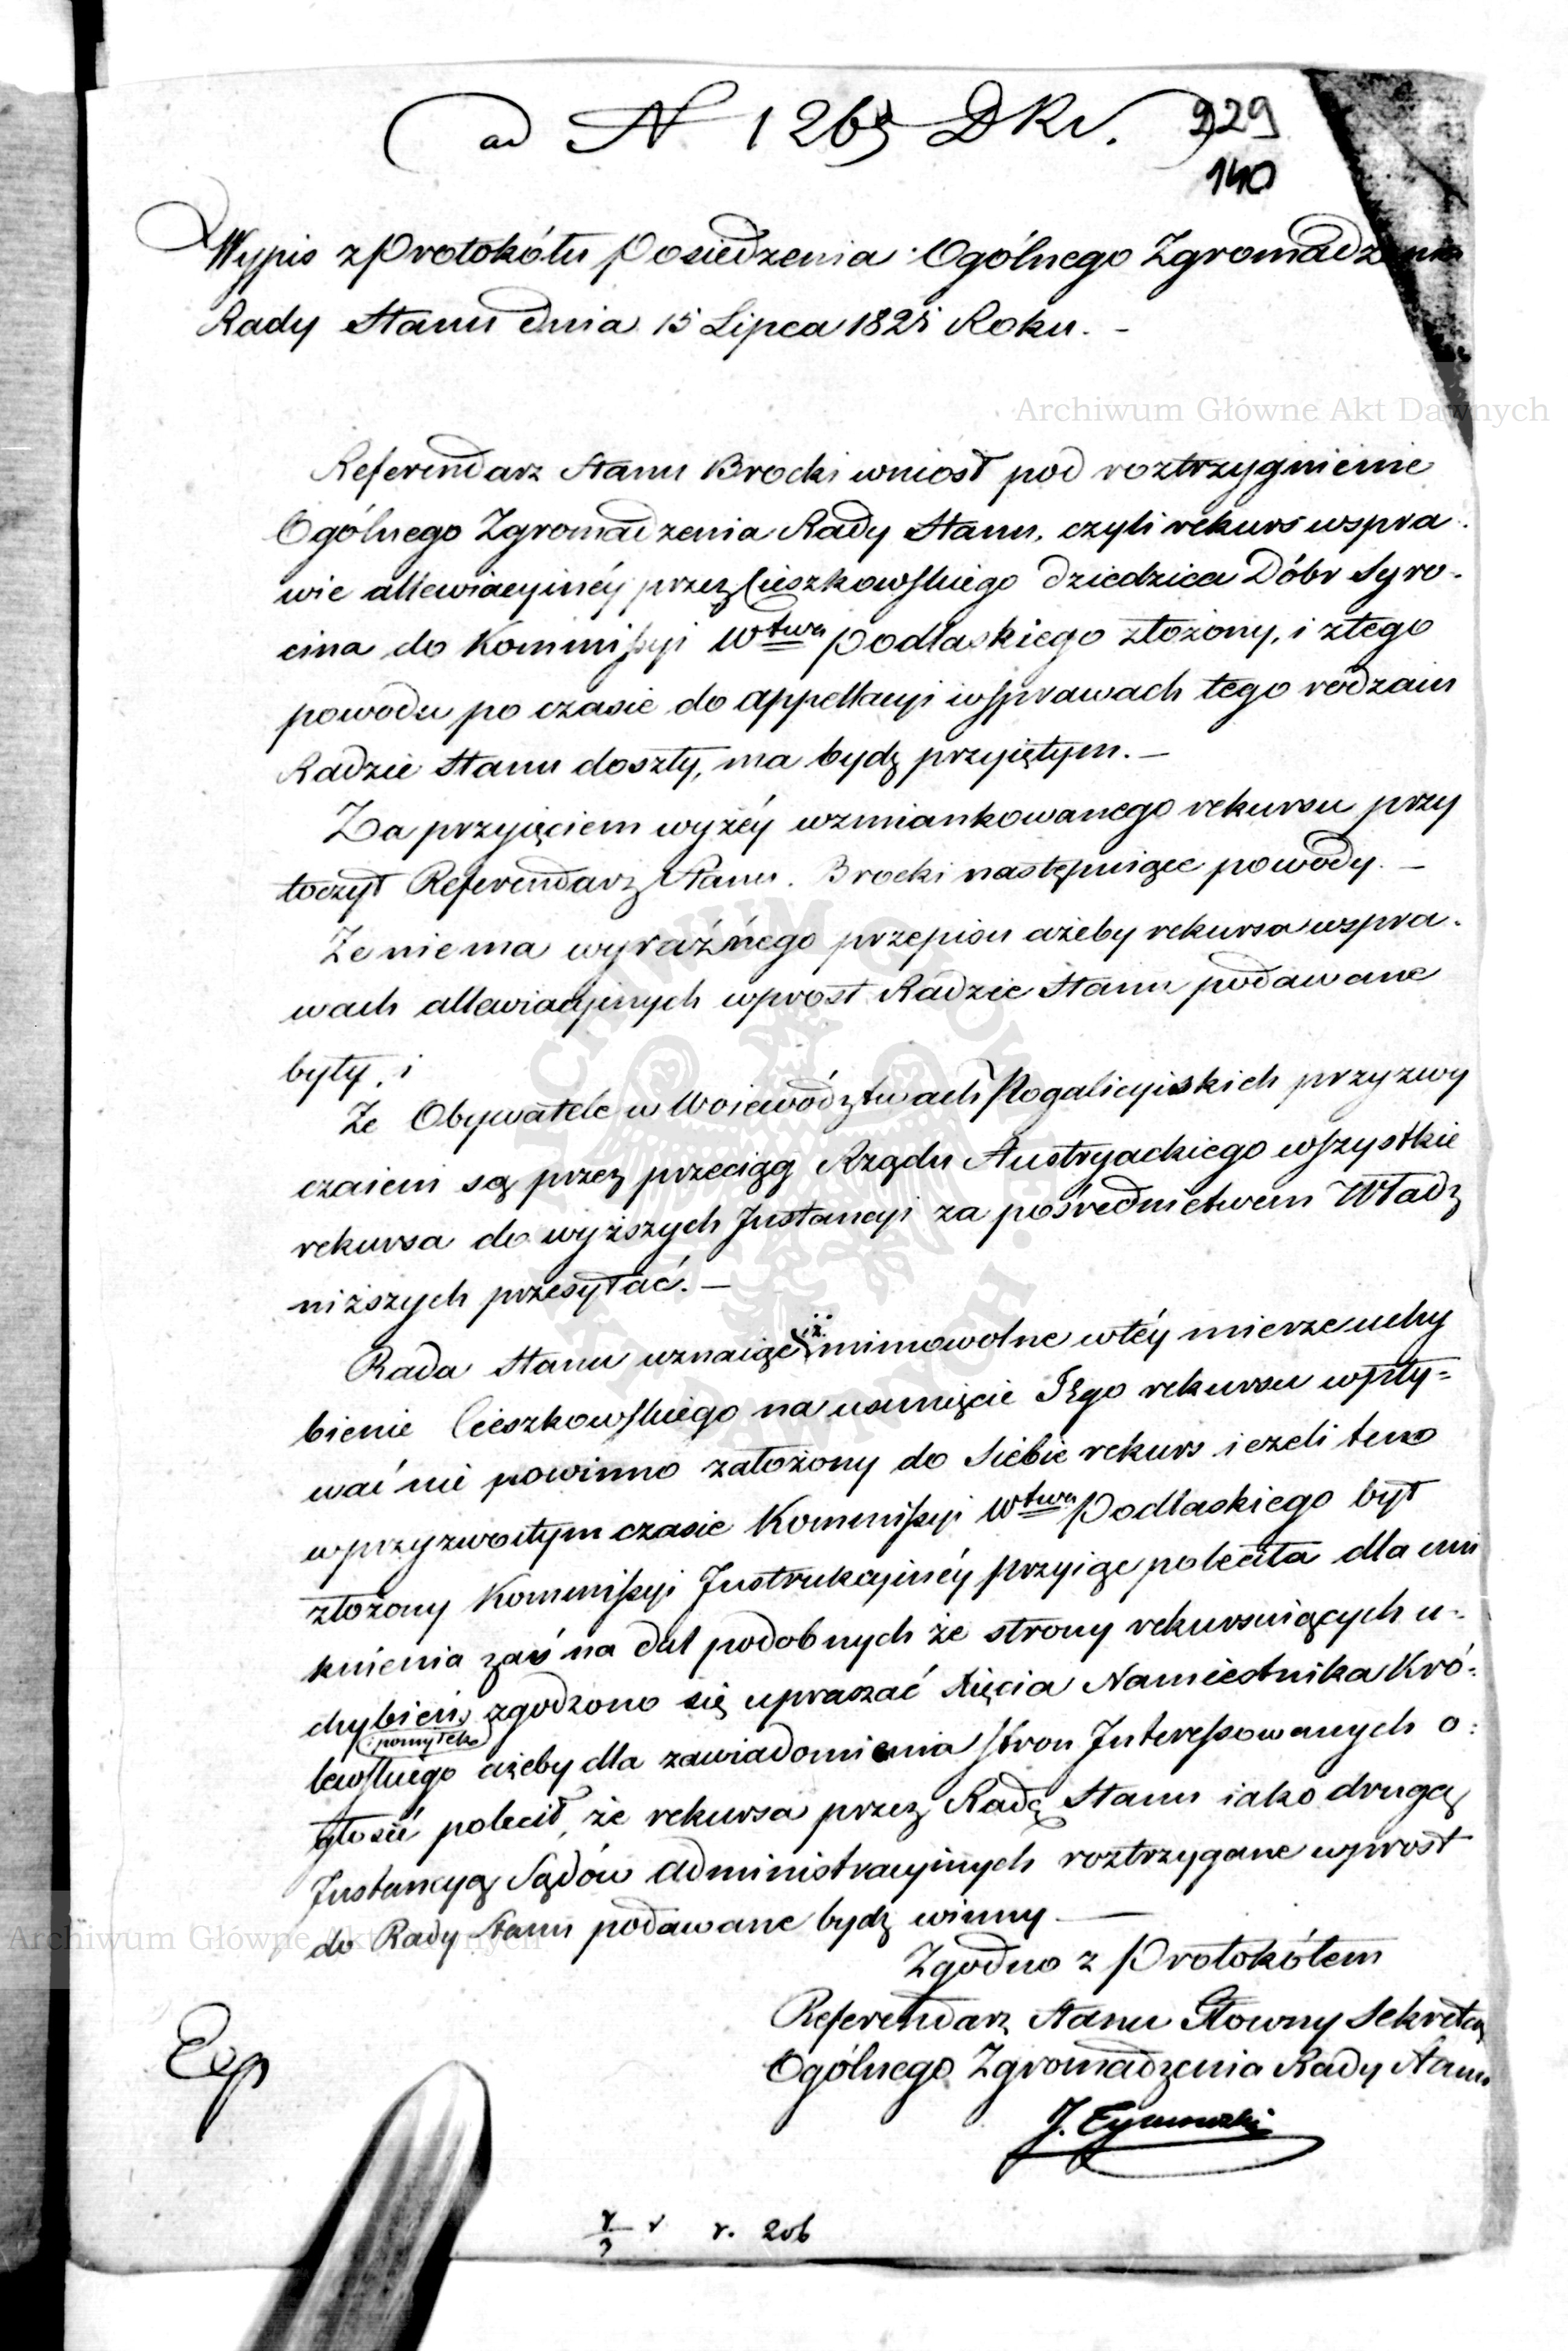 ad N 1265 DKr.
929
140
Wypis z Protokółu Posiedzenia Ogólnego Zgromadzenia
Rady Stanu dnia 15 Lipca 1825 Roku. -
Archiwum Główne Akt Dawnych
Referendarz Stanu Brocki wniosł pod roztrzygnienie
Ogólnego Zgromadzenia Rady Stanu, czyli rekurs wspra-
wie allewiacyinéy przez Cieszkowskiego dziedzica Dóbr Syro-
cina do Kommissyi Wtwa Podlaskiego złożony, i ztego
powodu po czasie do appellacyi wsprawach tego rodzaiu
Radzie Stanu doszły, ma bydź przyiętym. —
Za przyięciem wyżéy wzmiankowanego rekursu przy
toczył Referendarz Stanu Brocki następuiące powody. —
Że niema wyraźnego przepisu ażeby rekursa wspra-
wach allewiacyinych wprost Radzie Stanu podawane
były, i
Że Obywatele w Woiewództwach Pogalicyiskich przyzwy
czaieni są przez przeciąg Rządu Austryackiego wszystkie
rekursa do wyższych Instancyi za pośrednictwem Władz
niższych przesyłać. —
Rada Stanu uznaiąc iż mimowolne wtéy mierze uchy
bienie Cieszkowskiego na usunięcie Iego rekursu wpły=
wać nie powinno założony do Siebie rekurs ieżeli teno
wprzyzwoitym czasie Kommissyi Wtwa Podlaskiego był
złożony Kommissyi Instrukcyinéy przyiąć poleciła dla uni
knienia zaś na dal podobnych ze strony rekursuiących u-
chybień, zgodzono się upraszać Xięcia Namiestnika Kró-
pomyłek
lewskiego ażeby dla zawiadomienia stron Interessowanych o=
głosić polecił, że rekursa przez Radę Stanu iako drugą
Instancyą Sądów administracyinych roztrzygane wprost
do Rady Stanu podawane bydź winny. —
Archiwum Główne Akt Dawnych
Zgodno z Protokółem
Referendarz Stanu Głowny Sekretarz
Ogólnego Zgromadzenia Rady Stanu
Exp
J. Tymowski
r. 206
ARCHIWUM GŁÓWNE AKT DAWNYCH